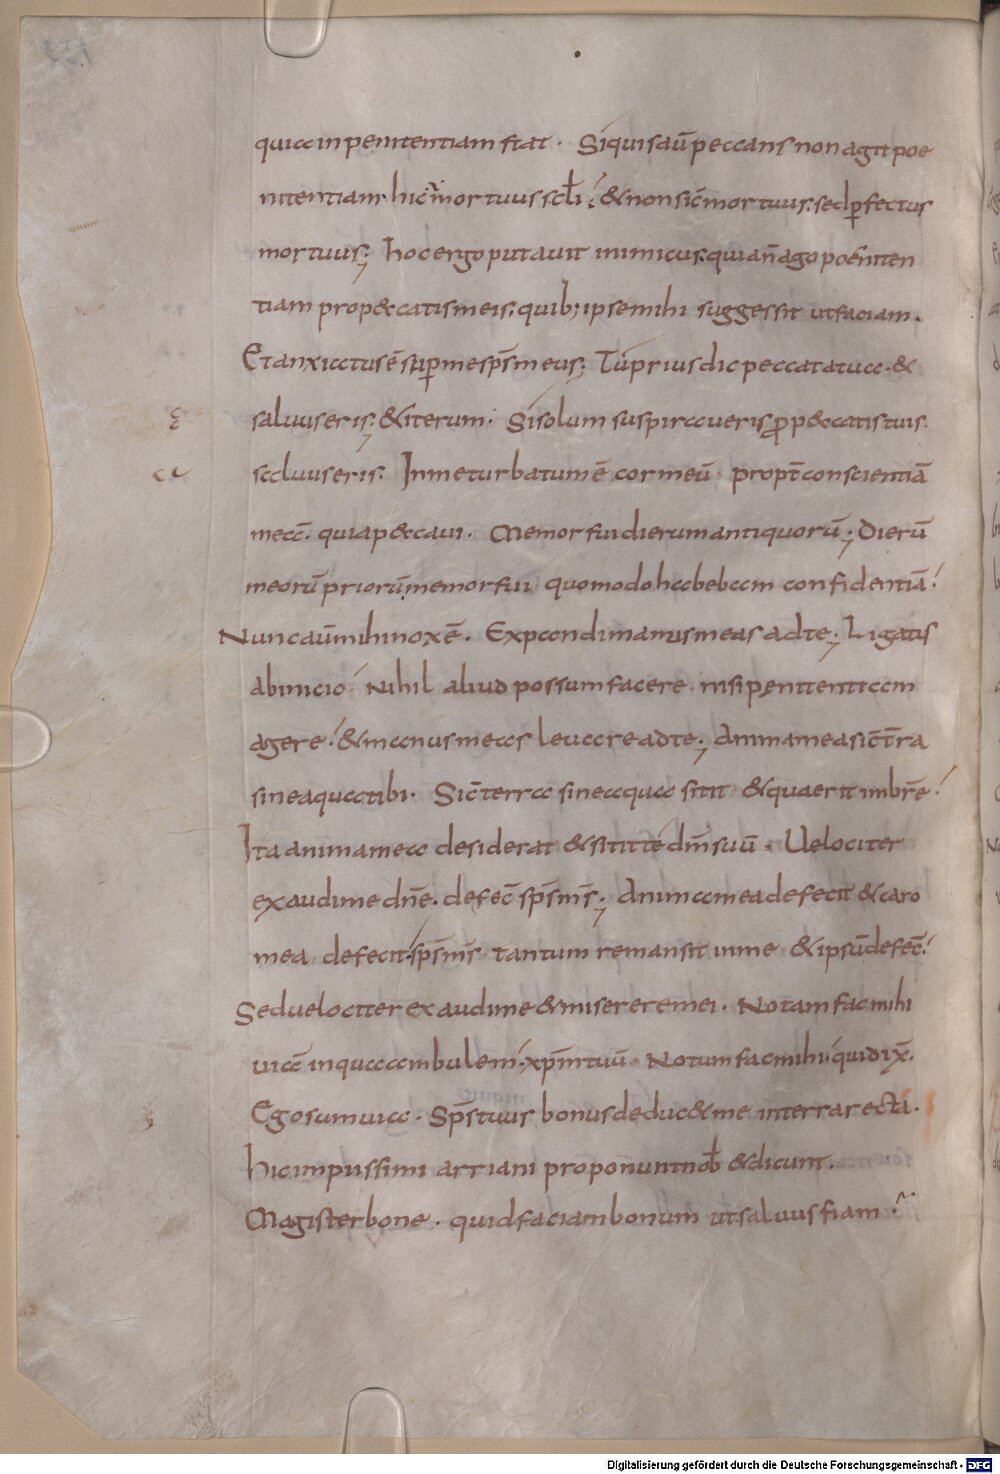 quia in penitentiam stat · Siquis aū peccans non agit poe
nitentiam hic ñ mortuus scłi ⁏ & non sic̄ mortuus; sed ꝑfectus
mortuus; hoc ergo putauit inimicus; quia ñ ago poeniten
tiam pro p&catis meis; quib; ipse mihi suggessit ut faciam.
Et anxiatus ē suꝑ me sps̄ meus; Tu prius dic peccata tua · &
saluus eris; & iterum: Si solum suspiraueris ꝓ p&catis tuis.
saluus eris: In me turbatum ē cor meū propt̄ conscientiā
meā. quia p&caui. Memor fui dierum antiquorū; Dierū
meorū priorū memor fui quomodo habebam confidentiā!
Nunc aū mihi nox ē. Expandi manus meas ad te; Ligatis
abinicio Nihil aliud possum facere nisi penitentiam
agere! & manus meas leuare ad te; Anima mea sic̄ t̄ra
sine aqua tibi. Sic̄ terra sine aqua sitit & quaerit imbrē!
Ita anima mea desiderat & sitit te dm̄ suū. Uelociter
exaudi me dn̄e. defec̄ sps̄ ms̄; Anima mea defecit & caro
mea defecit. sps̄ ms̄ tantum remansit in me & ipsū defec̄!
Sed uelociter exaudi me & miserere mei. Notam fac mihi
uiā in qua ambulem. xp̄m tuū. Notum fac mihi quidix̄.
Ego sum uia. Sps̄ tuus bonus deduc& me in terra recta.
hic impiissimi arriani proponunt nob̄ & dicunt.
Magister bone. quid faciam bonum ut saluus fiam
Digitalisierung gefördert durch die Deutsche Forschungsgemeinschaft - DFG